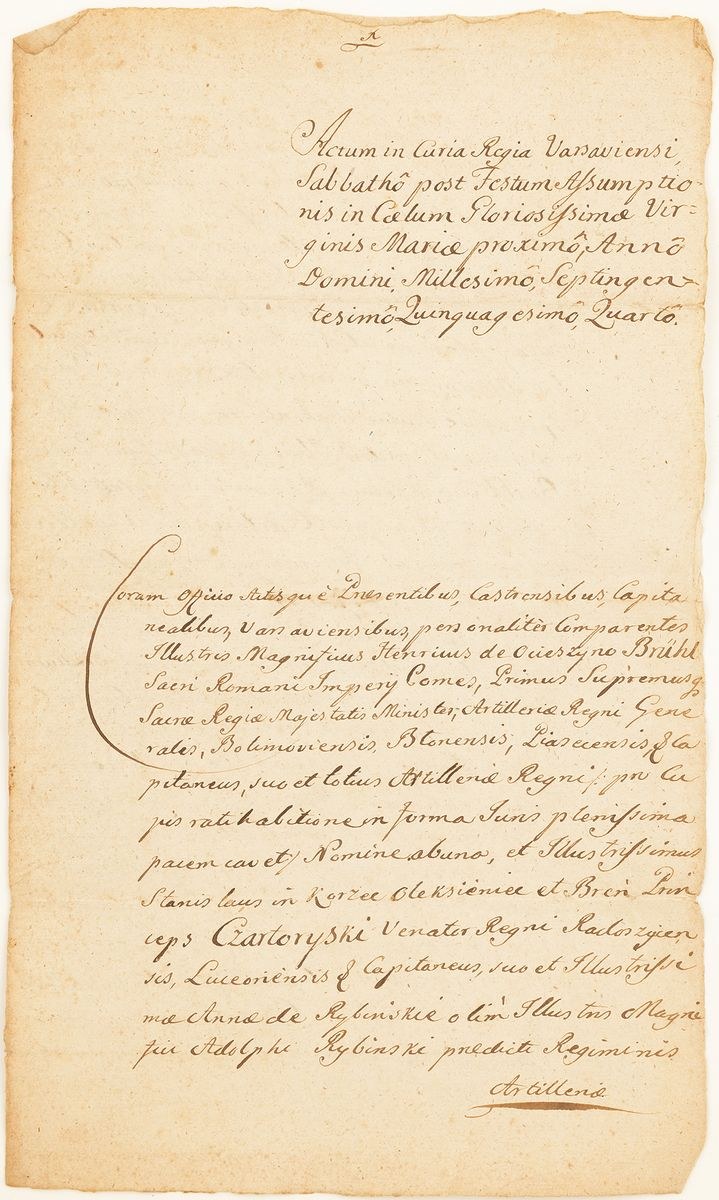 A
Actum in Curia Regia Varsaviensi,
Sabbathô post Festum Assumptio-
nis in Cælum Gloriosissimæ Vir=
ginis Mariæ proximô, Annô
Domini, Millesimô, Septingen-
tesimô, Quinquagesimô, Quartô.
Coram Officio Actisquè Præsentibus, Castrensibus, Capita
nealibus, Varsaviensibus, personalitèr Comparentes
Illustris Magnificus Henricus de Ocieszyno Brühl
Sacri Romani Imperij Comes, Primus Supremusq;
Sacræ Regiæ Majestatis Minister, Artilleriæ Regni Gene
ralis, Bolimoviensis, Blonensis, Piasecensis, & Ca
pitaneus, suo et totius Artilleriæ Regni /: pro
ratihabitione in forma Juris plenissima
cavet / Nomine ab una, et Illustrissimus
Stanislaus in Korzec Oleksieniec et Breń Prin
ceps Czartoryski Venator Regni Radoszycen
sis, Luceoriensis & Capitaneus, suo et Illustrissi
mæ Annæ de Rybinskie olim Illustris Magni
fici Adolphi Rybinski prædicti Regiminis
Artilleriæ